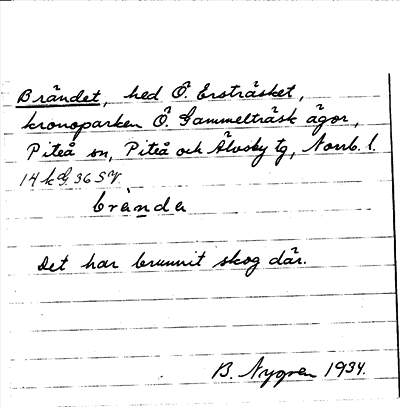 Brändet, hed Ö. Ersträsket,
kronoparken Ö. Gammelträsk ägor,
Piteå sn, Piteå och Älvsby tg, Norrb. l.
14 k G. 36 SV.
brända
Det har brunnit skog där.
B. Nygren 1934.